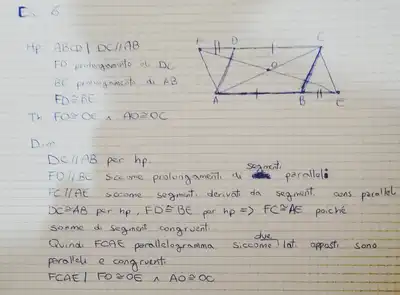 Es 6
Hp ABCD | DC//AB
FD prolungamento di DC
BE prolungamento di AB
FD≅BE
Th FO≅OE ∧ AO≅OC
F D C
O
A B E
Dim
DC//AB per hp.
segmenti
FD//BE siccome prolungamenti di paralleli
FC//AE siccome segmenti derivati da segmenti paralleli
DC≅AB per hp, FD≅BE per hp => FC≅AE poiché
somme di segmenti congruenti
due
Quindi FCAE parallelogramma siccome lati opposti sono
paralleli e congruenti
FCAE | FO≅OE ∧ AO≅OC